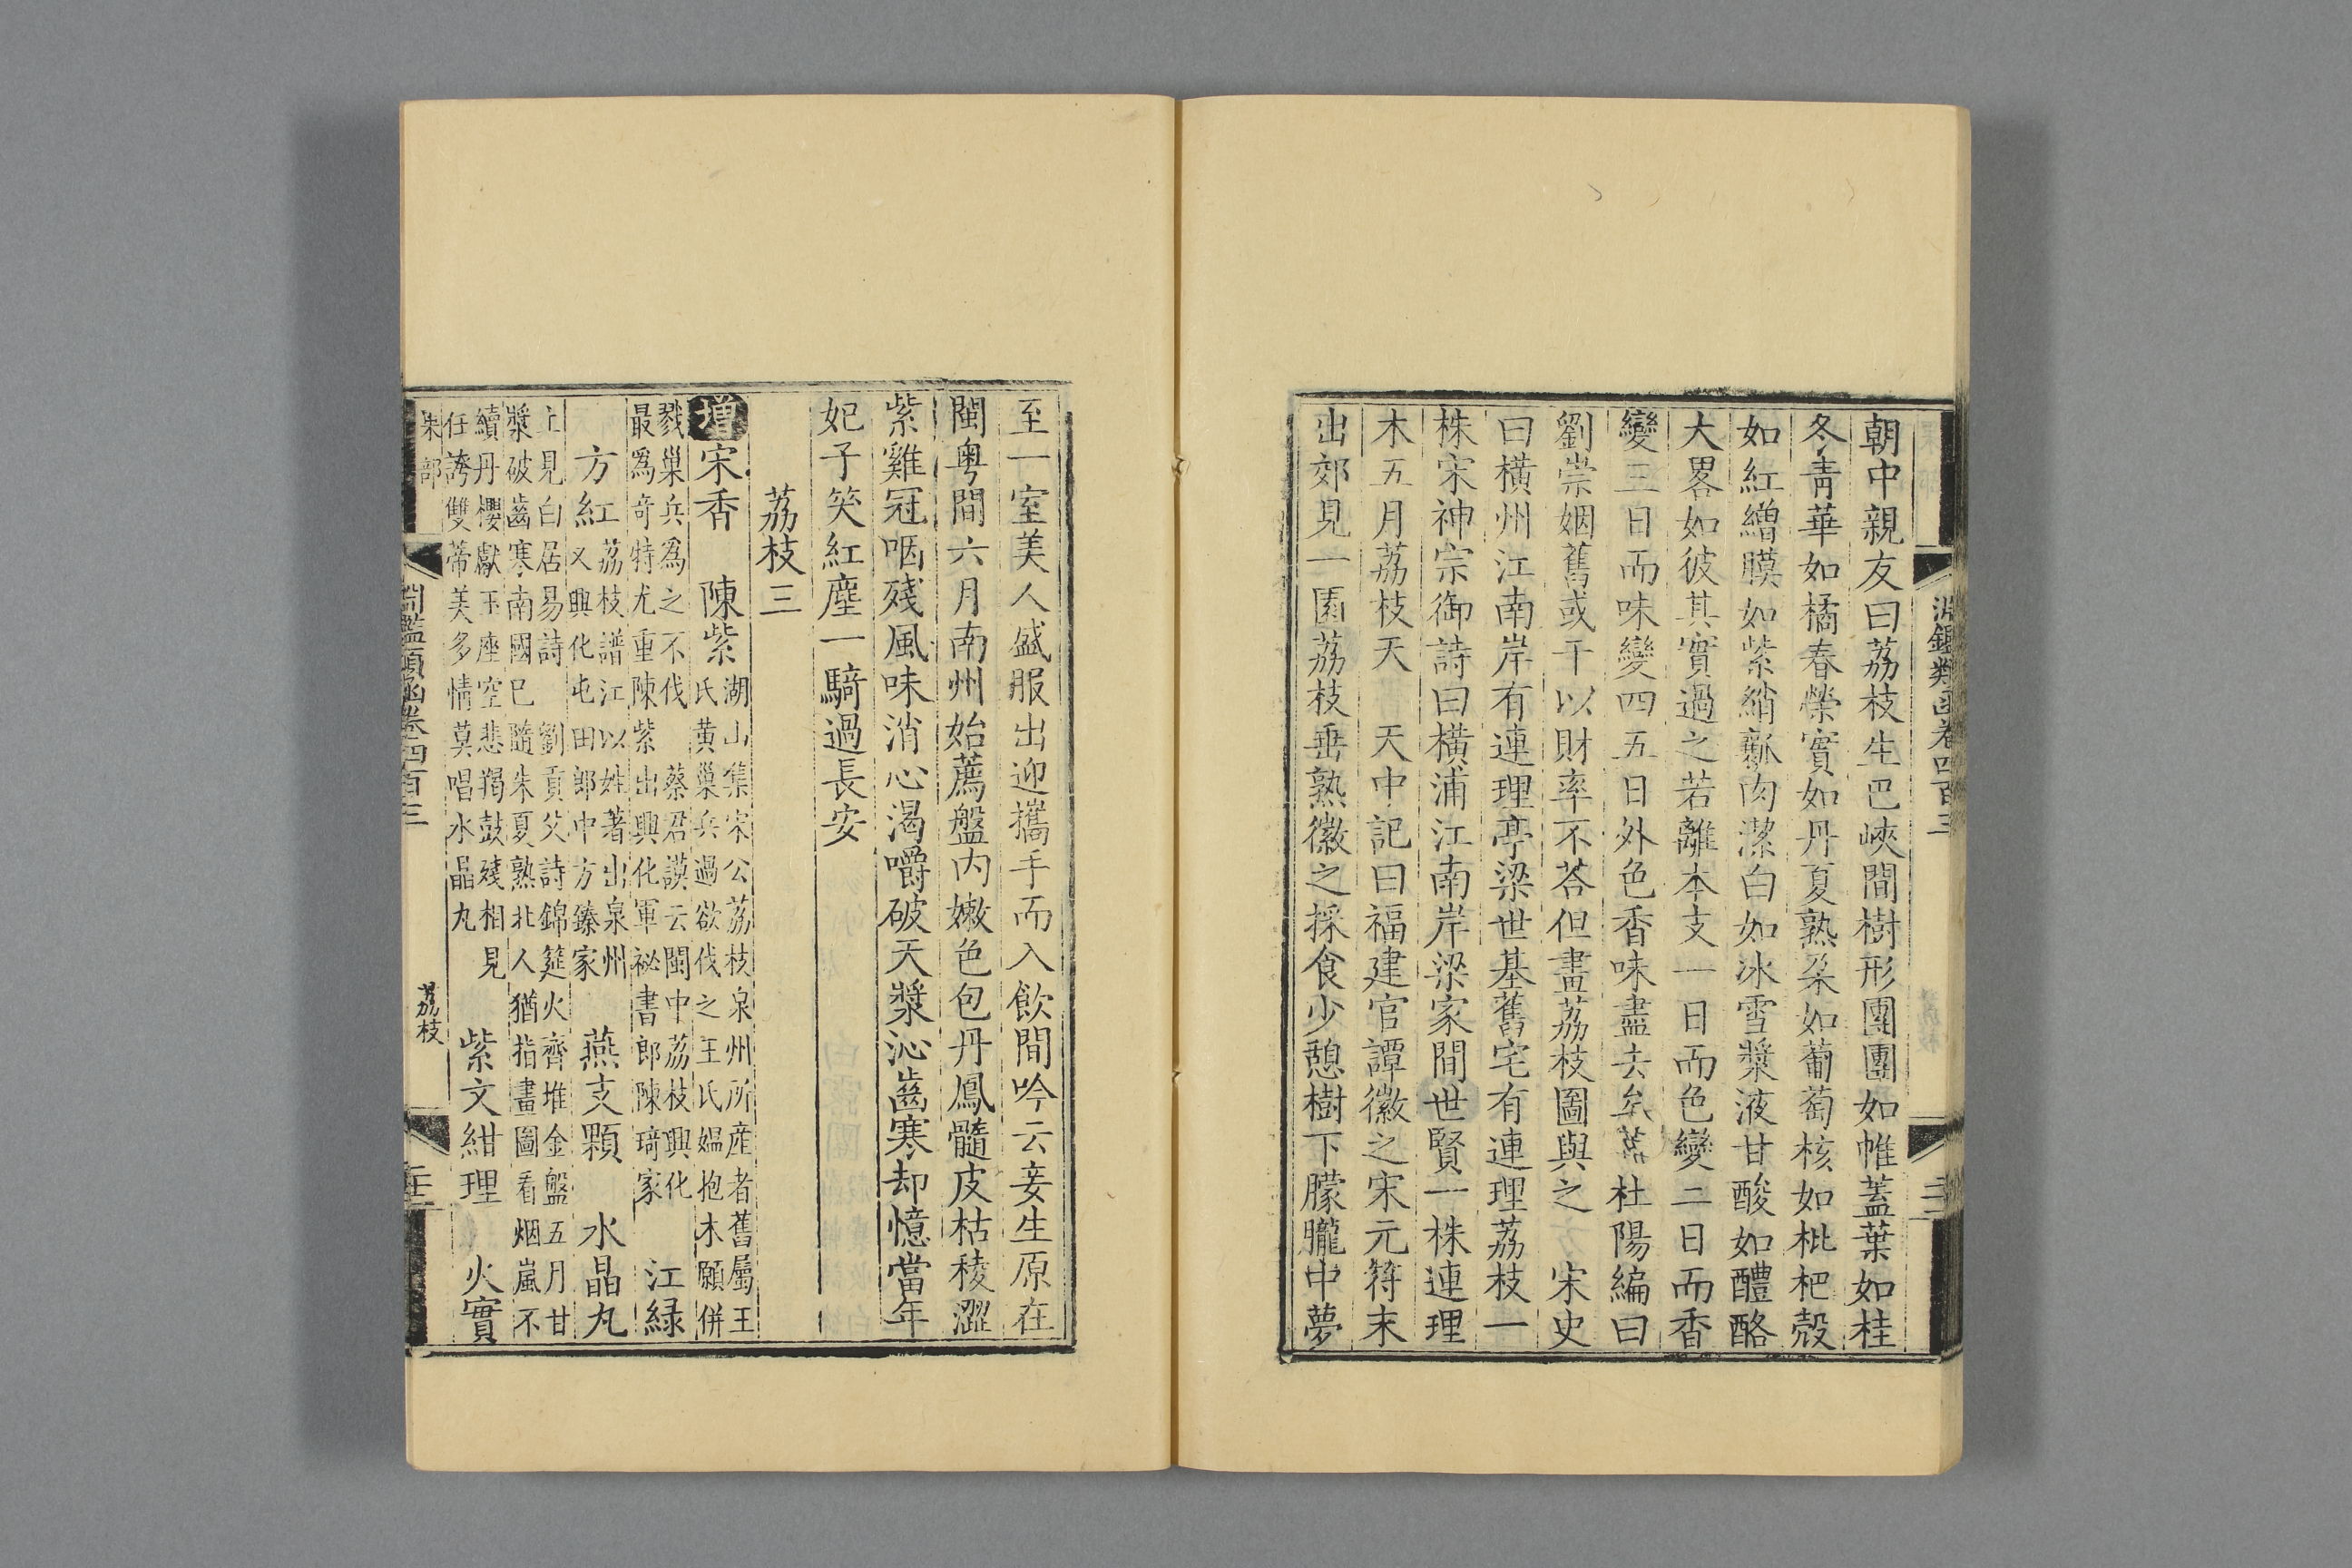 淵鑑類函卷四百三
朝中親友曰荔枝生巴峽間樹形團團如帷蓋葉如桂
冬靑華如橘春榮實如丹夏熟朶如葡萄核如枇杷殼
如紅繒膜如紫綃瓤肉潔白如冰雪漿液甘酸如醴酪
大畧如彼其實過之若離本支一日而色變二日而香
變三日而味變四五日外色香味盡去矣 杜陽編曰
劉崇姻舊或干以財率不荅但畫荔枝圖與之 宋史
曰橫州江南岸有連理亭梁世基舊宅有連理荔枝一
株宋神宗御詩曰橫浦江南岸梁家間世賢一株連理
木五月荔枝天 天中記曰福建官譚徽之宋元符末
出郊見一園荔枝垂熟徽之採食少憩樹下朦朧中夢
至一室美人盛服出迎攜手而入飲間吟云妾生原在
閩粵間六月南州始薦盤内嫩色包丹鳳髓皮枯稜澀
紫雞冠咽殘風味消心渴嚼破天漿沁齒寒却憶當年
妃子笑紅塵一騎過長安
荔枝三
增宋香 陳紫
湖山集宋公荔枝泉州所産者舊屬王
氏黃巢兵過欲伐之王氏媪抱木願併
戮巢兵爲之不伐 蔡君謨云閩中荔枝興化
最爲奇特尤重陳紫出興化軍祕書郎陳琦家
江緑
方紅
荔枝譜江以姓著出泉州
又興化屯田郎中方臻家
燕支顆 水晶丸
上見白居易詩 劉貢父詩錦筵火齊堆金盤五月甘
漿破齒寒南國已隨朱夏熟北人猶指畫圖看烟嵐不
續丹櫻獻玉座空悲羯鼓殘相見
任誇雙蒂美多情莫唱水晶丸
紫文紺理 火實
朱部
淵鑑類函卷四百三
荔枝